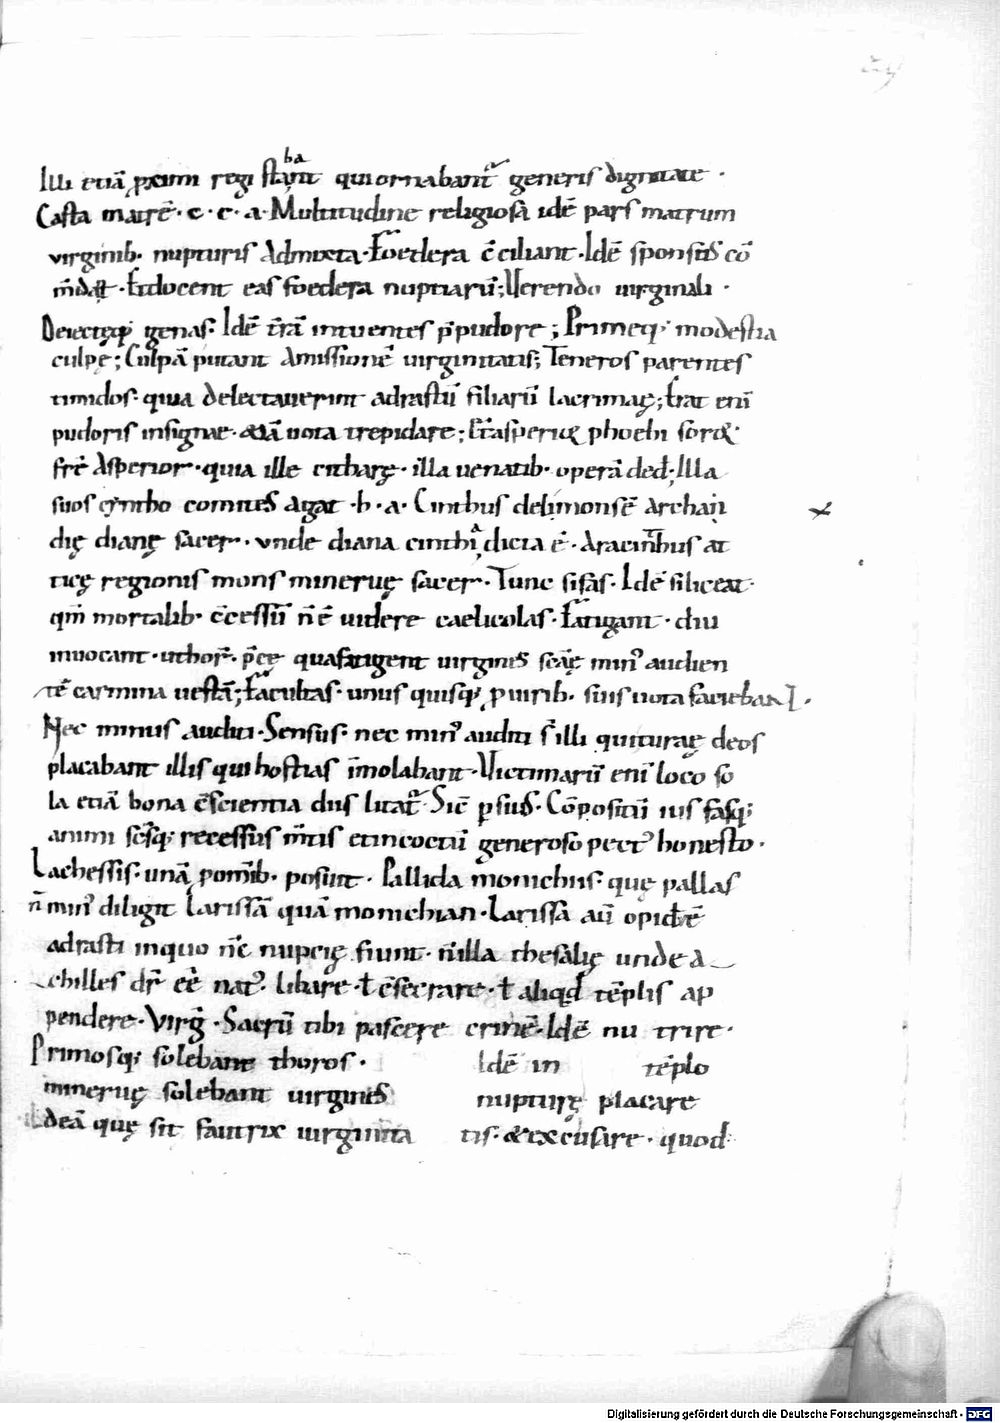 Illi etiā ꝓximi regi sta&#96;ba&#96;nt qui ornabant᷑ generis dignitate ·
Casta matrē · c · c · a · Multitudine religiosa idē pars matrum
virginib· nupturis Admixta · Foedera c̄ciliant · Idē sponsis cō
m̄dat · Et docent eas foedera nuptiarū; Verendo virginali ·
Deiectęq; genas · Idē t̄rā intuentes p̄pudore; Primeq; modestia
culpę; Culpā putant Amissionē virginitatis; Teneros parentes
timidos · quia delectauerint adrastū filiarū lacrimae; Erat enī
pudoris insignae · uota trepidare; phoebi soror
frē Asperior · quia ille citharę · illa uenatib· operā ded; Illa
suos cyntho comites Agat · h · a · Cinthus deli mons ē Archa
dię dianę sacer · vnde diana cinthia dicta ē · Aracinthus at
ticę regionis mons mineruę sacer · Tunc si fas · Idē si liceat ·
qm̄ mortalib· c̄cessū n̄ ē uidere caelicolas · Fatigant · diu
inuocant · p̄ce quasi fatigent virgines min᷒ audien
tē carmina uestā; Facultas · unus quisq; ꝓ uirib· suis uota faciebant ·
Nec minus auditi · Sensus · nec min᷒ auditi s̄ illi qui turae deos
placabant illis qui hostias īmolabant · Victimarū enī loco so
la etiā bona c̄scientia diis litat᷑ · Sic̄ persius · Cōpositū ius fasq;
animi sc̄sq; recessus m̄tis et incoctū generoso pect᷒ honesto ·
Lachessis · unā posunt · Pallida monichus · quę pallas
n̄ min᷒ diligit Larissā quā monichian · Larissa aū opidū ē
adrasti in quo n̄c nupcię fiunt · n̄ illa thesalię unde a
chilles dr̄ eē nat᷒ · libare · ł c̄secrare · ł aliqd tēplis ap
pendere · Virḡ · Sacrū tibi pascere crinē · Idē nu trire ·
Primosq; solebant thoros · Idē in tēplo
mineruę solebant virgines nupturę placare
deā quę sit fautrix virginita tis · & excusare · quod
Digitalisierung gefördert durch die Deutsche Forschungsgemeinschaft - DFG